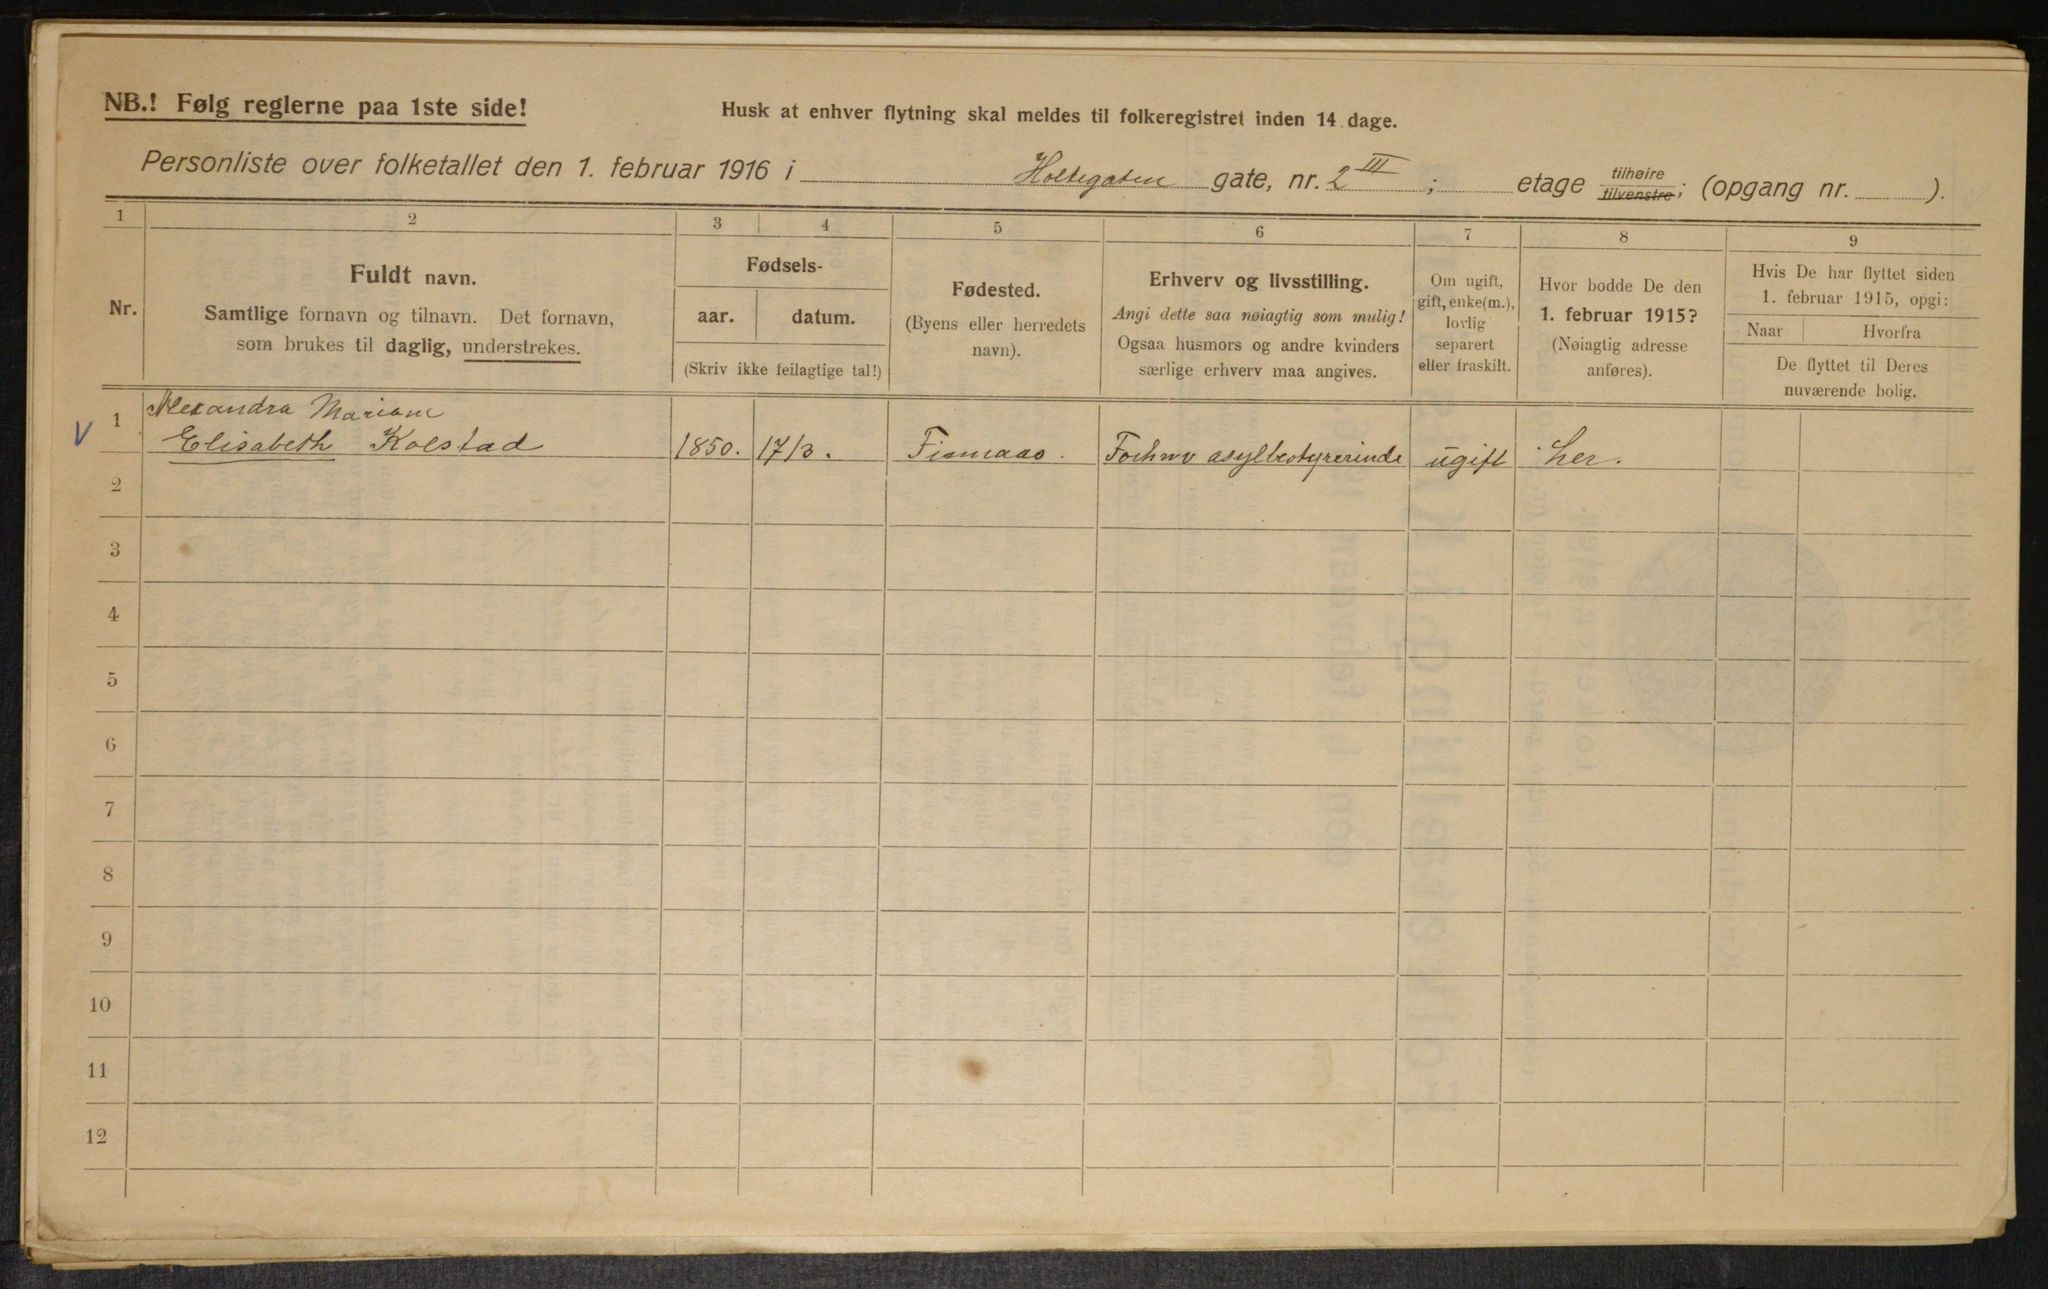 NB.! Følg reglerne paa 1ste side!
Husk at enhver flytning skal meldes til folkeregistret inden 14 dage.
Personliste over folketallet den 1. februar 1916 i Holtegaten gate, nr. 2 III; etage tilhøire tilvenstre; (opgang nr. ).
1 2 3 4 5 6 7 8 9
Nr.
Fuldt navn.
Samtlige fornavn og tilnavn. Det fornavn,
som brukes til daglig, understrekes.
Fødsels-
aar. datum.
(Skriv ikke feilagtige tal!)
Fødested.
(Byens eller herredets
navn).
Erhverv og livsstilling.
Angi dette saa nøiagtig som mulig!
Ogsaa husmors og andre kvinders
særlige erhverv maa angives.
Om ugift,
gift, enke(m.),
lovlig
separert
eller fraskilt.
Hvor bodde De den
1. februar 1915?
(Nøiagtig adresse
anføres).
Hvis De har flyttet siden
1. februar 1915, opgi:
Naar Hvorfra
De flyttet til Deres
nuværende bolig.
V 1 Alexandra Mariane
Elisabeth Kolstad 1850. 17/3. asylbestyrerinde ugift her.
2
3
4
5
6
7
8
9
10
11
12